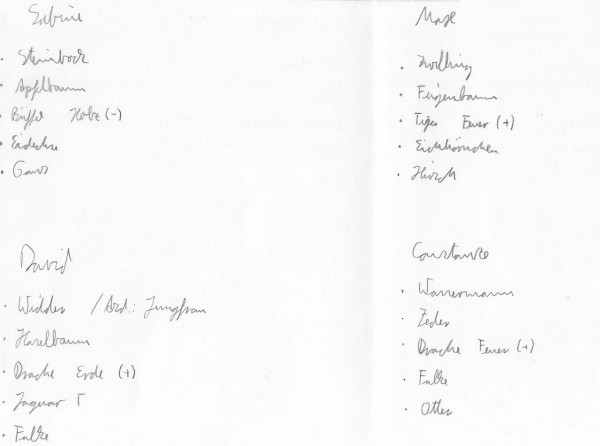 Sabine
• Steinbock
• Apfelbaum
• Büffel Holz (-)
• Eidechse
• Gans
Max
• Zwilling
• Feigenbaum
• Tiger Feuer (+)
• Eichhörnchen
• Hirsch
David
• Widder / Asz.: Jungfrau
• Haselbaum
• Drache Erde (+)
• Jaguar T
• Falke
Constanze
• Wassermann
• Zeder
• Drache Feuer (+)
• Falke
• Otter